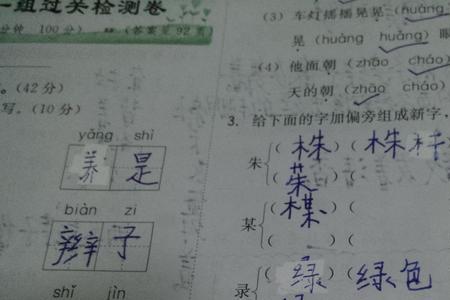 一组过关检测卷
分钟 100分) (答案见92页
。(42分)
写。(10分)
yǎng shì
养 是
biàn zi
辫 子
shǐ jìn
(3) 车灯摇摇晃晃(huǎng
晃(huǎng huàng)眼
(4) 他面朝(zhāo cháo)
天的朝(zhāo cháo)
3. 给下面的字加偏旁组成新字,
朱 (株)(株杆
(茱)(
某 (楳)(
( )(
录 (绿)(绿色